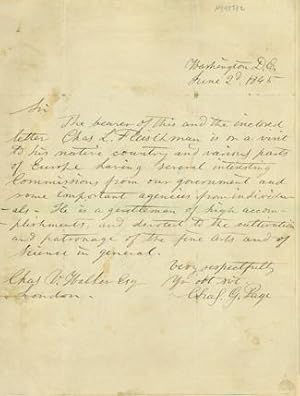 Washington D.C.
June 2d. 1845
Sir
The bearer of this and the inclosed
letter Chas L. Fleischman is on a visit
to his native country and various parts
of Europe having several interesting
Commissions from our government and
some important agencies from individu-
als. He is a gentleman of high accom-
plishments, and devoted to the cultivation
and patronage of the fine arts and of
science in general.
Very respectfully
Yr obt svt
Chas. G. Page
Chas V. Walker Esq
London.